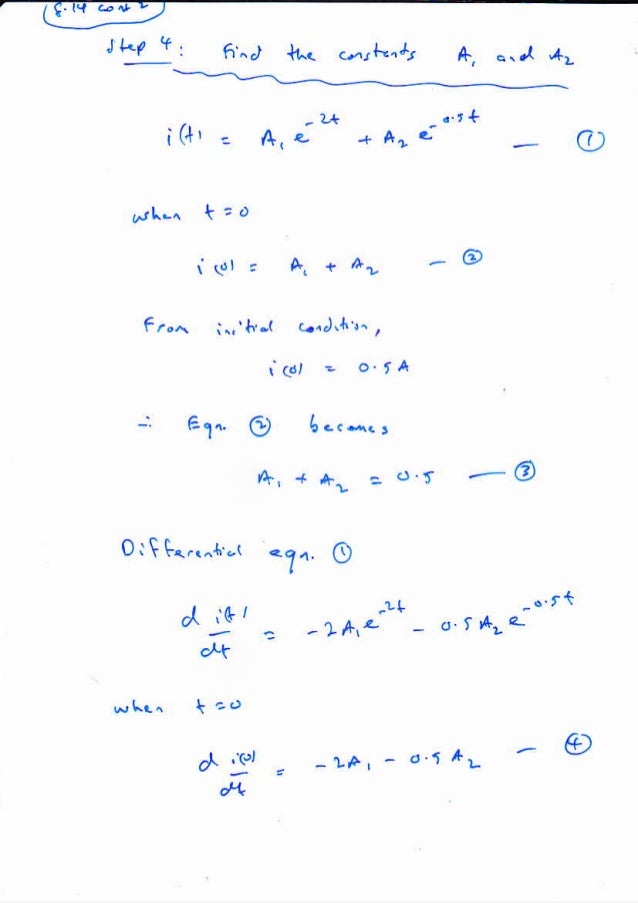 8.14 cont 2
Step 4: Find the constants A₁ and A₂
i(t) = A₁ e^-2t + A₂ e^-0.5t — ①
when t = 0
i(0) = A₁ + A₂ — ②
From initial condition,
i(0) = 0.5A
∴ Eqn. ② becomes
A₁ + A₂ = 0.5 — ③
Differential eqn. ①
d i(t)/dt = -2A₁e^-2t - 0.5A₂e^-0.5t
when t = 0
d i(0)/dt = -2A₁ - 0.5A₂ — ④